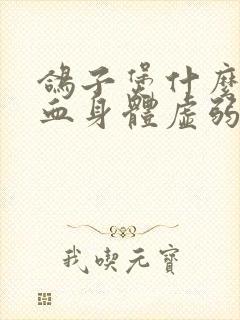 鴿子煲什麼
血身體虛弱
我喫元寶